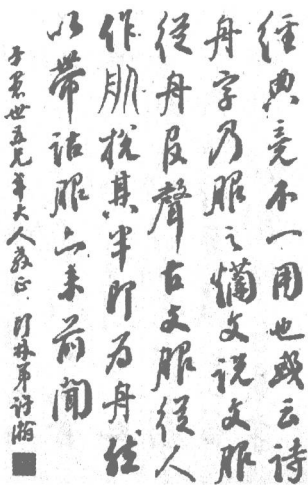 經典竟不一用也或云詩
舟字乃服之爛文說文服
從舟𠬝聲古文服從人
作肌挩其半即为舟然
以帶詁服亦未前聞
子君世五兄年大人教正 印林弟許瀚